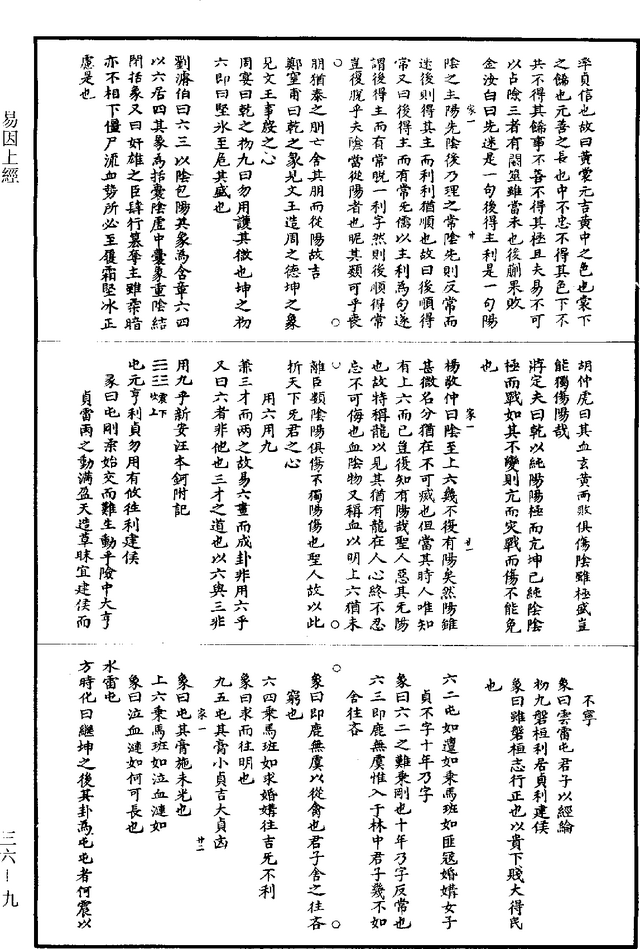 易因上經
率貞信也故曰黃裳元吉黃中之色也裳下
之餙也元善之長也中不忠不得其色下不
共不得其餙事不善不得其極且夫易不可
以占險三者有闕筮雖當未也後蒯果敗
金汝白曰先迷是一句後得主利是一句陽
家一
廿
陰之主陽先陰後乃理之常陰先則反常而
迷後則得其主而利利猶順也故曰後順得
常又曰後得主而有常先儒以主利為句遂
謂後得主而有常脫一利字然則後順得常
豈復脫乎夫陰當從陽者也昵其類可乎喪
朋猶泰之朋亡舍其朋而從陽故吉
鄭室甫曰乾之象見文王造周之德坤之象
見文王事殷之心
周宴曰乾之初九曰勿用護其微也坤之初
六即曰堅氷至危其盛也
劉濬伯曰六三以陰包陽其象為含章六四
以六居四其象為括囊陰虛中囊象重陰結
閉括象又曰奸雄之臣肆行篡奪主雖柔暗
亦不相下僵尸流血勢所必至履霜堅冰正
慮是也
胡仲虎曰其血玄黃兩敗俱傷陰雖極盛豈
能獨傷陽哉
蔣定夫曰乾以純陽陽極而亢坤已純陰陰
極而戰如其不變則亢而灾戰而傷不能免
也
家一
廿一
楊敬仲曰陰至上六幾不復有陽矣然陽雖
甚微名分猶在不可烕也但當其時人唯知
有上六而已豈復知有陽哉聖人惡其无陽
也故特稱龍以見其猶有龍在人心終不忍
忘不可侮也血陰物又稱血以明上六猶未
離臣類陰陽俱傷不獨陽傷也聖人故以此
折天下无君之心
用六用九
兼三才而兩之故易六畫而成卦非用六乎
又曰六者非他也三才之道也以六與三非
用九乎新安汪本鈳附記
䷂坎上震下
屯元亨利貞勿用有攸往利建侯
彖曰屯剛柔始交而難生動乎險中大亨
貞雷雨之動滿盈天造草昧宜建侯而
不寧
象曰雲雷屯君子以經綸
初九磐桓利居貞利建侯
象曰雖磐桓志行正也以貴下賤大得民
也
六二屯如邅如乘馬班如匪寇婚媾女子
貞不字十年乃字
象曰六二之難乘剛也十年乃字反常也
六三即鹿無虞惟入于林中君子幾不如
舍往吝
象曰即鹿無虞以從禽也君子舍之往吝
窮也
六四乘馬班如求婚媾往吉无不利
象曰求而往明也
九五屯其膏小貞吉大貞凶
家一
廿二
象曰屯其膏施未光也
上六乘馬班如泣血漣如
象曰泣血漣如何可長也
水雷屯
方時化曰繼坤之後其卦為屯屯者何震以
三六—九